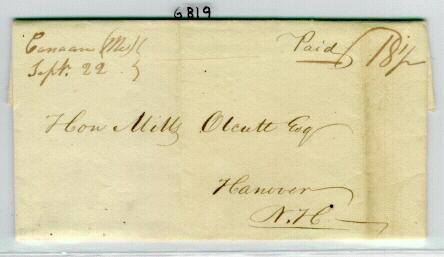 6819
Canaan (Me)
Sept. 22
Paid 18½
Hon Mills Olcutt Esq
Hanover
N.H